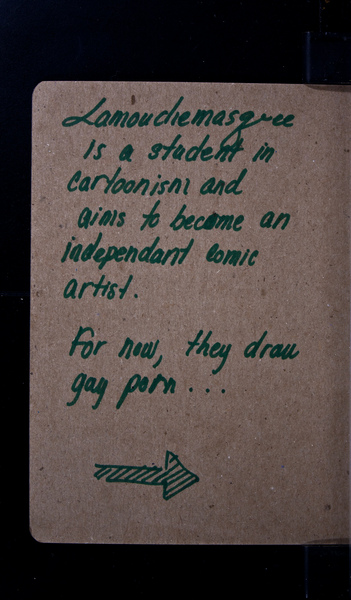 Lamouchemasquee
is a student in
cartoonism and
aims to become an
independant comic
artist.
For now, they draw
gay porn...